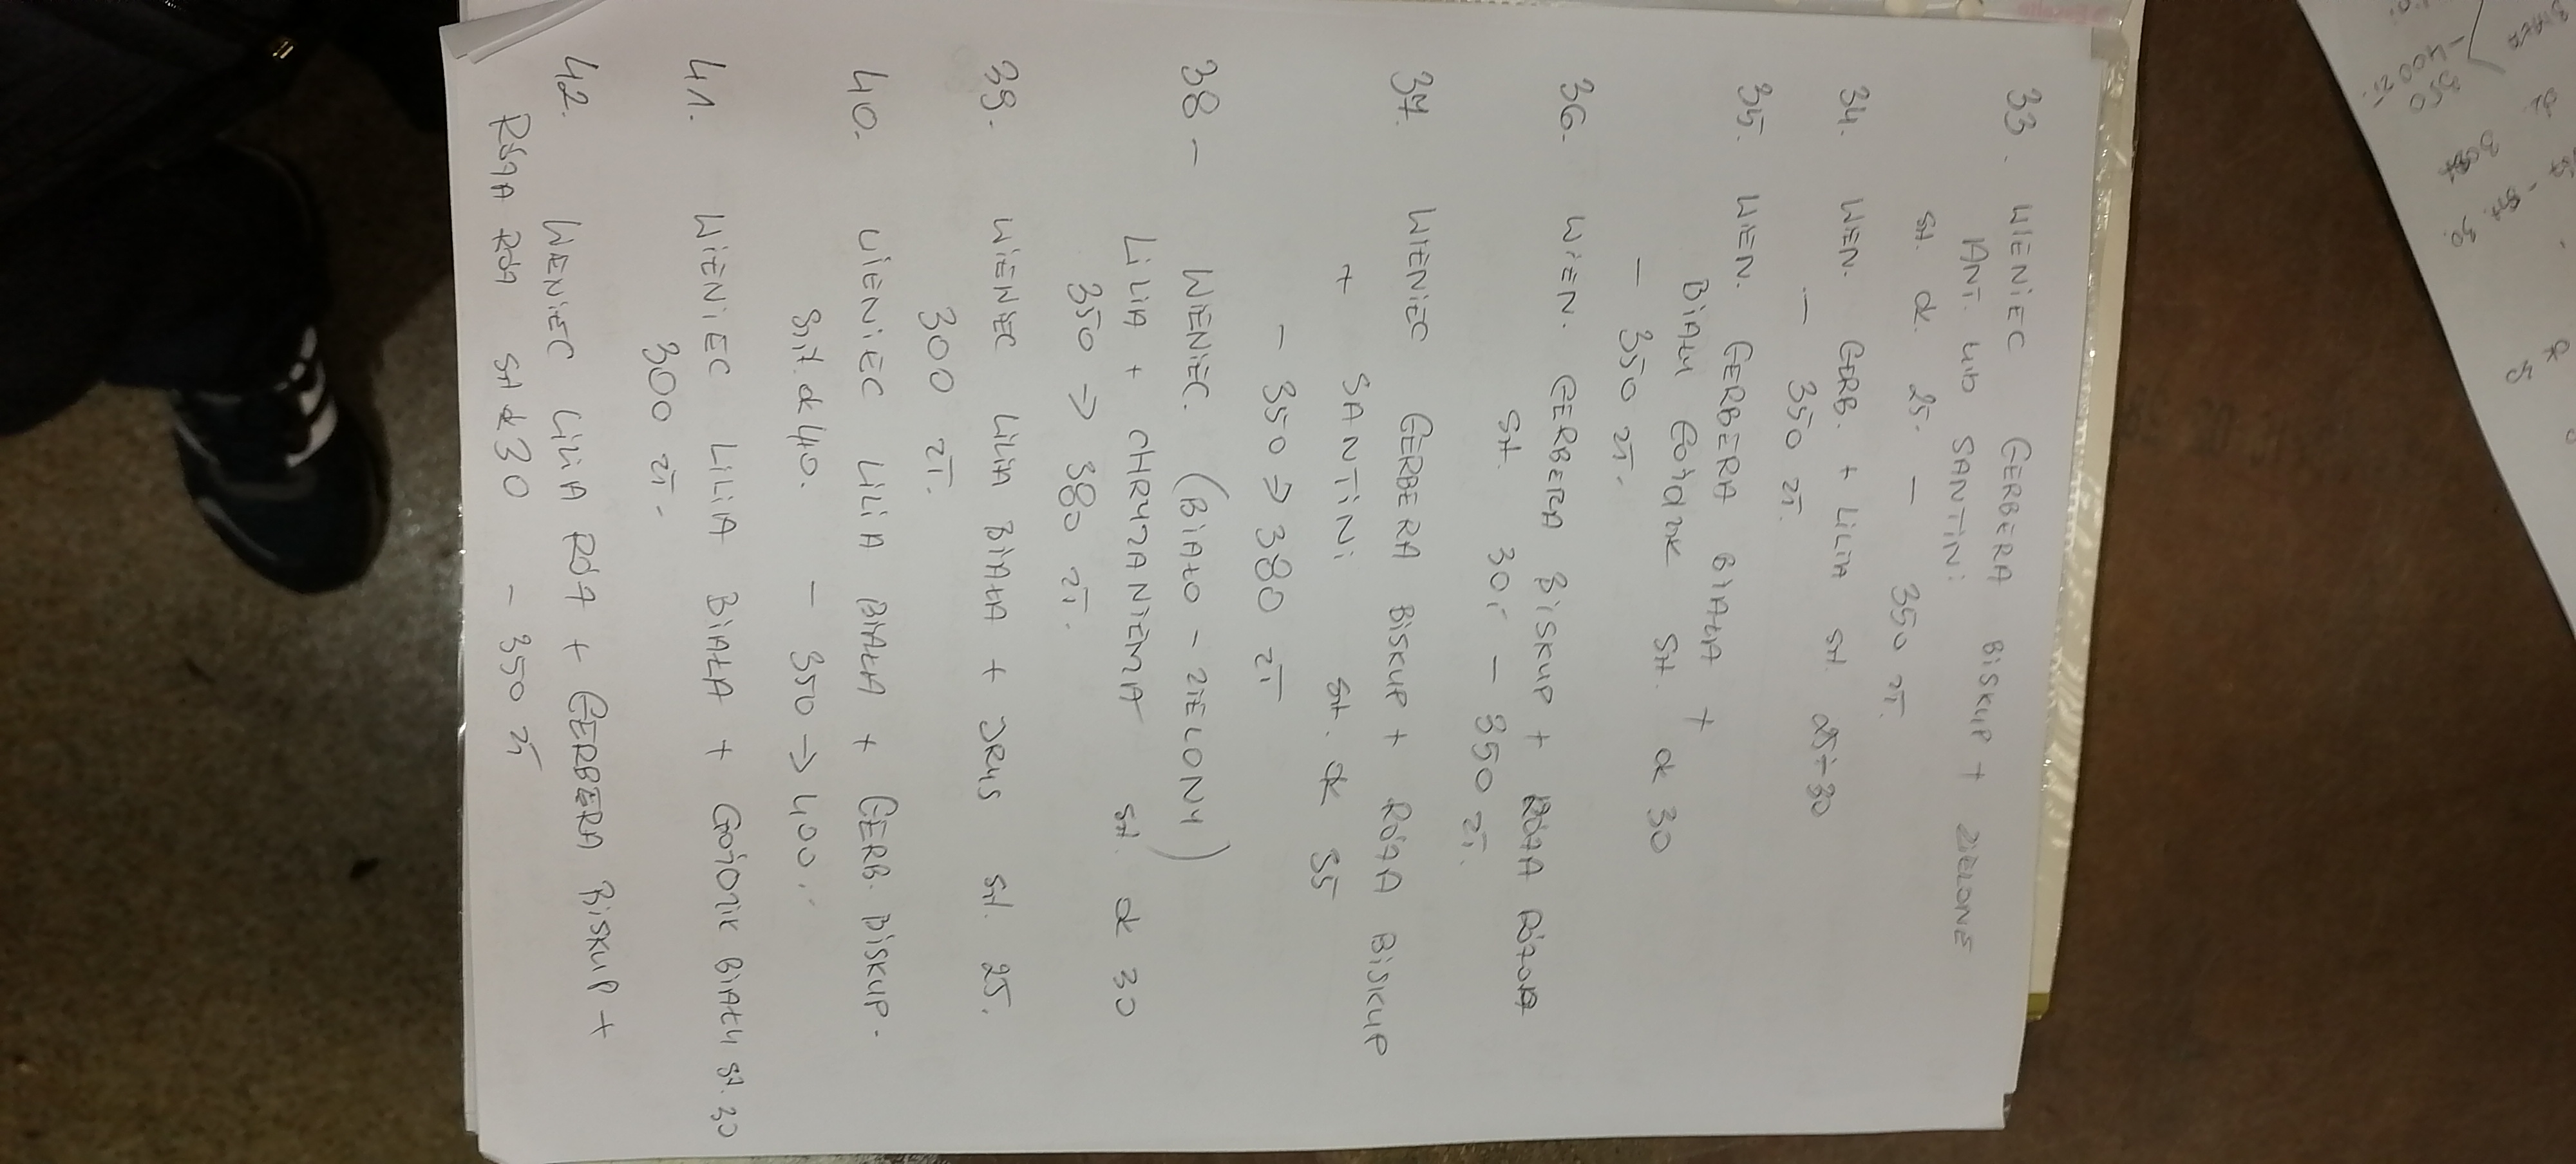 350
- 400 zł.
szt. 30.
ok 30
33. WIENIEC GERBERA BISKUP + ZIELONE
ANT. lub SANTINI
szt. ok. 25. - 350 zł.
34. WIEN. GERB. + LILIA szt. 25÷30
- 350 zł.
35. WIEN. GERBERA BIAŁA +
BIAŁY GOŹDZIK szt. ok 30
- 350 zł.
36. WIEN. GERBERA BISKUP + RÓŻA RÓŻOWA
szt. 30. - 350 zł.
37. WIENIEC GERBERA BISKUP + RÓŻA BISKUP
+ SANTINI szt. ok 35
- 350 → 380 zł
38 - WIENIEC. (BIAŁO - ZIELONY)
LILIA + CHRYZANTEMA szt. ok 30
350 → 380 zł.
39. WIENIEC LILIA BIAŁA + IRYS szt. 25.
300 zł.
40. WIENIEC LILIA BIAŁA + GERB. BISKUP.
szt. ok 40. - 350 → 400.
41. WIENIEC LILIA BIAŁA + GOŹDZIK BIAŁY szt. 30
300 zł.
42. WIENIEC LILIA RÓŻ + GERBERA BISKUP +
RÓŻA RÓŻ szt ok 30 - 350 zł